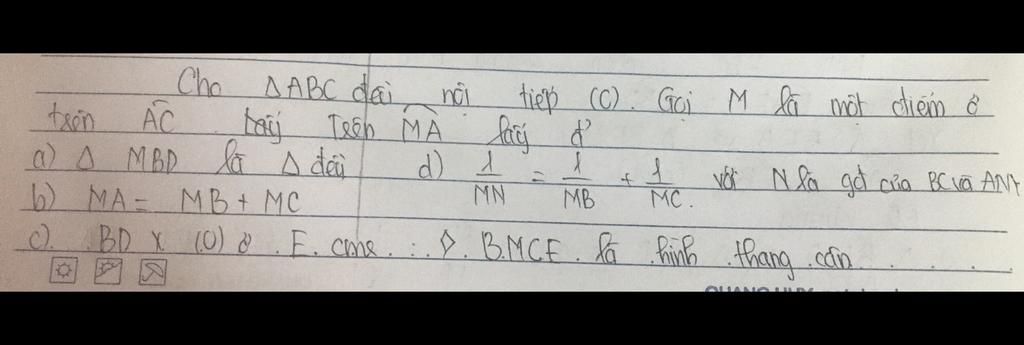 Cho ΔABC đều nội tiếp (O). Gọi M là một điểm ở
trên AC Trên MA lấy
a) Δ MBD là Δ đều d) 1/MN = 1/MB + 1/MC. với N là gđ của BC và AM
b) MA = MB + MC
c). BD x (O) ở E. cm BMCE là hình thang cân